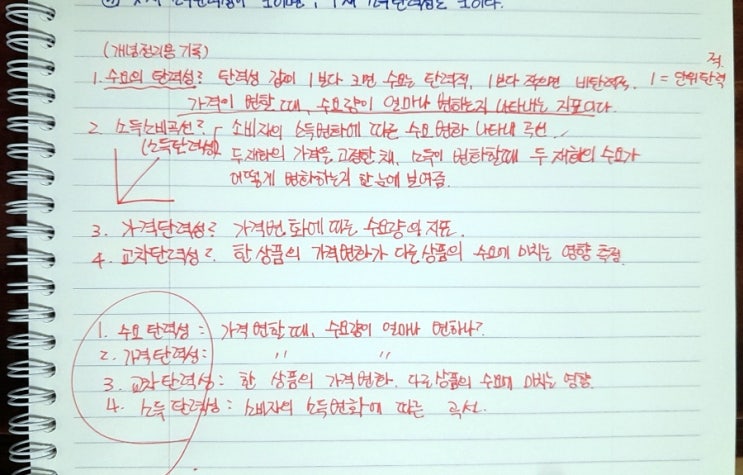 (개념정리용 기록)
1. 수요의 탄력성? 탄력성 값이 1보다 크면 수요는 탄력적, 1보다 작으면 비탄력적. 1 = 단위탄력적
가격이 변할 때, 수요량이 얼마나 변하는지 나타내는 지표이다.
2. 소득소비곡선? - 소비자의 소득변화에 따른 수요 변화 나타내 곡선
(소득탄력성) 두 재화의 가격을 고정한 채, 소득이 변화할때 두 재화의 수요가
어떻게 변화하는지 한 눈에 보여줌.
3. 가격탄력성? 가격변화에 따른 수요량의 지표.
4. 교차탄력성? 한 상품의 가격변화가 다른상품의 수요에 미치는 영향 측정.
1. 수요 탄력성 : 가격 변할 때, 수요량이 얼마나 변하나?
2. 가격탄력성 : " "
3. 교차탄력성 : 한 상품의 가격변화. 다른 상품의 수요에 미치는 영향.
4. 소득 탄력성 : 소비자의 소득변화에 따른 곡선.